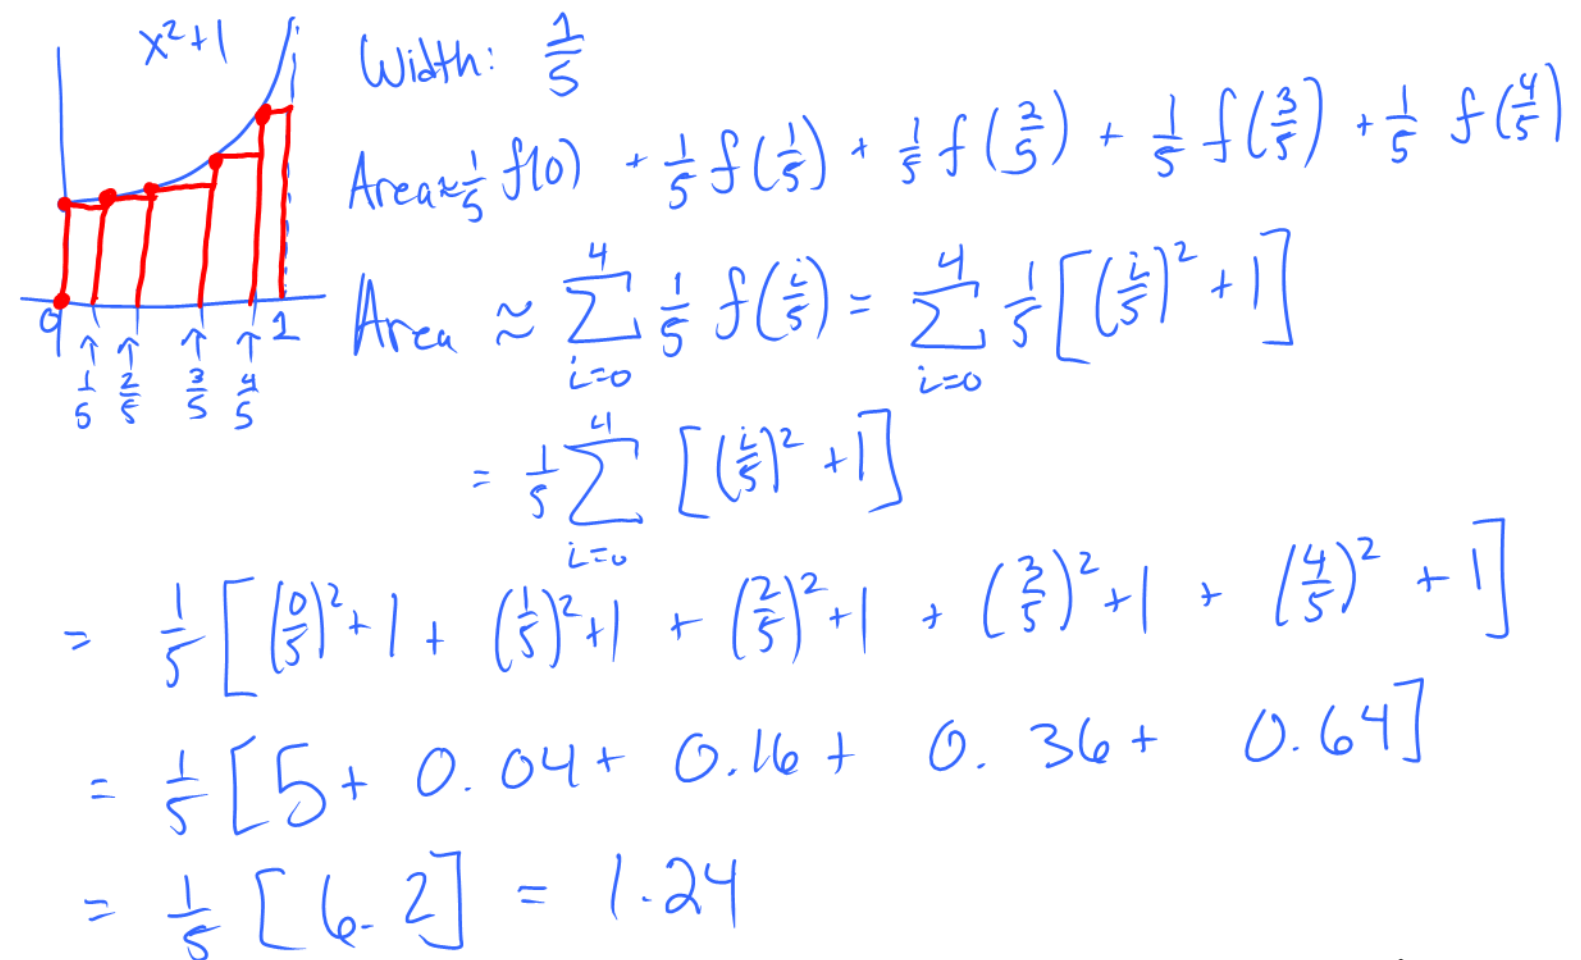 x²+1
Width: 1/5
Area ≈ 1/5 f(0) + 1/5 f(1/5) + 1/5 f(2/5) + 1/5 f(3/5) + 1/5 f(4/5)
0 1/5 2/5 3/5 4/5 1
Area ≈ ∑_{i=0}^{4} 1/5 f(i/5) = ∑_{i=0}^{4} 1/5 [(i/5)² + 1]
= 1/5 ∑_{i=0}^{4} [(i/5)² + 1]
= 1/5 [(0/5)² + 1 + (1/5)² + 1 + (2/5)² + 1 + (3/5)² + 1 + (4/5)² + 1]
= 1/5 [5 + 0.04 + 0.16 + 0.36 + 0.64]
= 1/5 [6.2] = 1.24